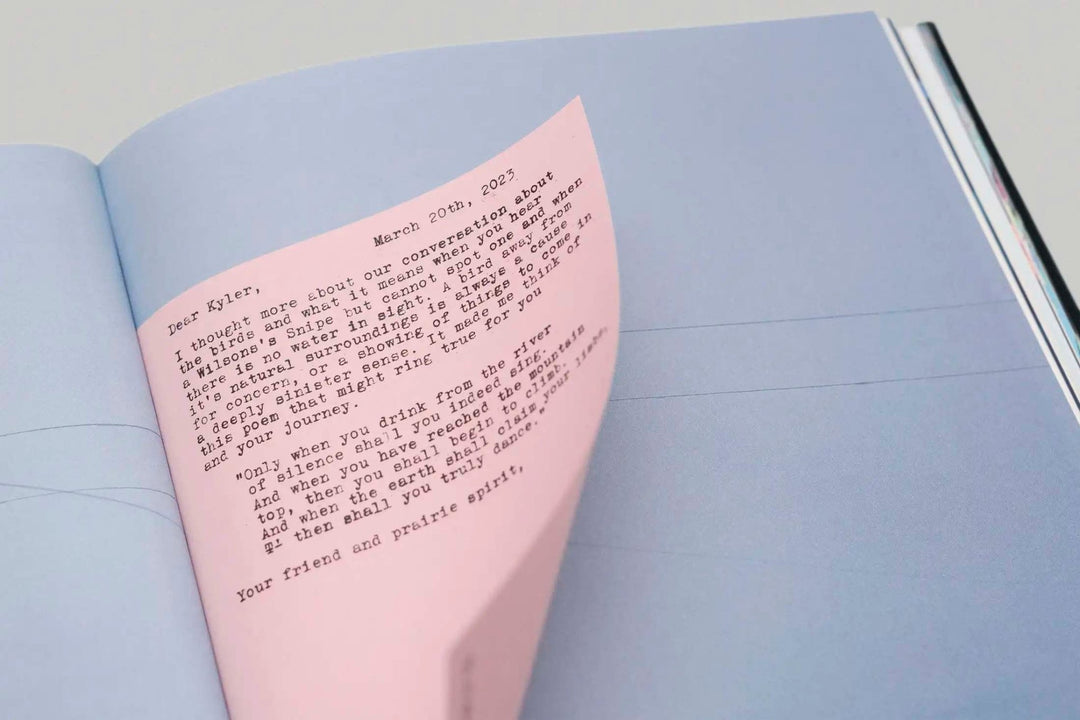 March 20th, 2023
Dear Kyler,
I thought more about our conversation about
the birds and what it means when you hear
a Wilsons's Snipe but cannot spot one and when
there is no water in sight. A bird away from
it's natural surroundings is always a cause
for concern, or a showing of things to come in
a deeply sinister sense. It made me think of
this poem that might ring true for you
and your journey.
"Only when you drink from the river
of silence shall you indeed sing.
And when you have reached the mountain
top, then you shall begin to climb.
And when the earth shall claim your limbs,
then shall you truly dance."
Your friend and prairie spirit,